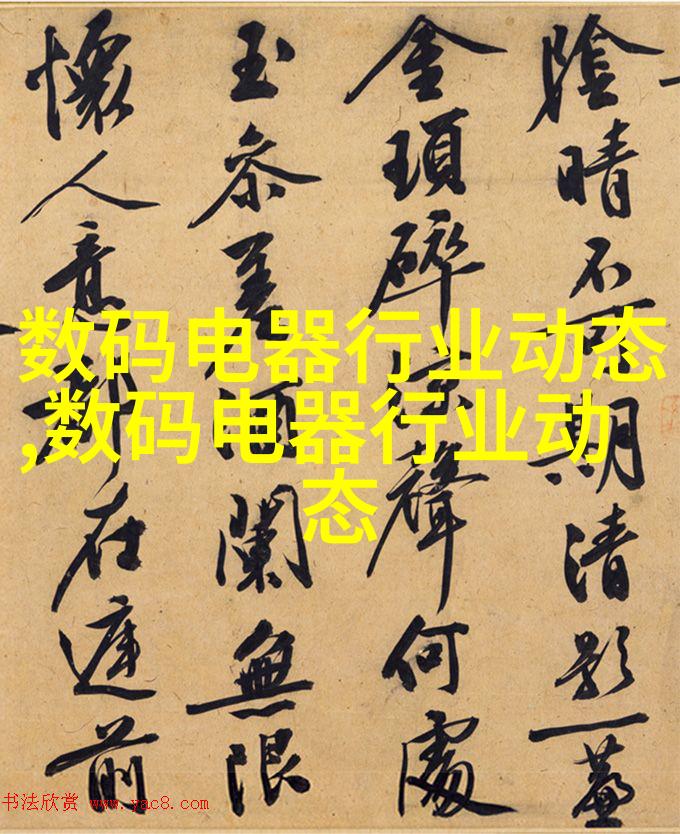 陰晴不可期清影一
金瑣碎聲何處
玉叅差酒闌無限
懷人意都在前
数码电器行业动态
,数码电器行业动
态
书法欣赏 www.yac8.com